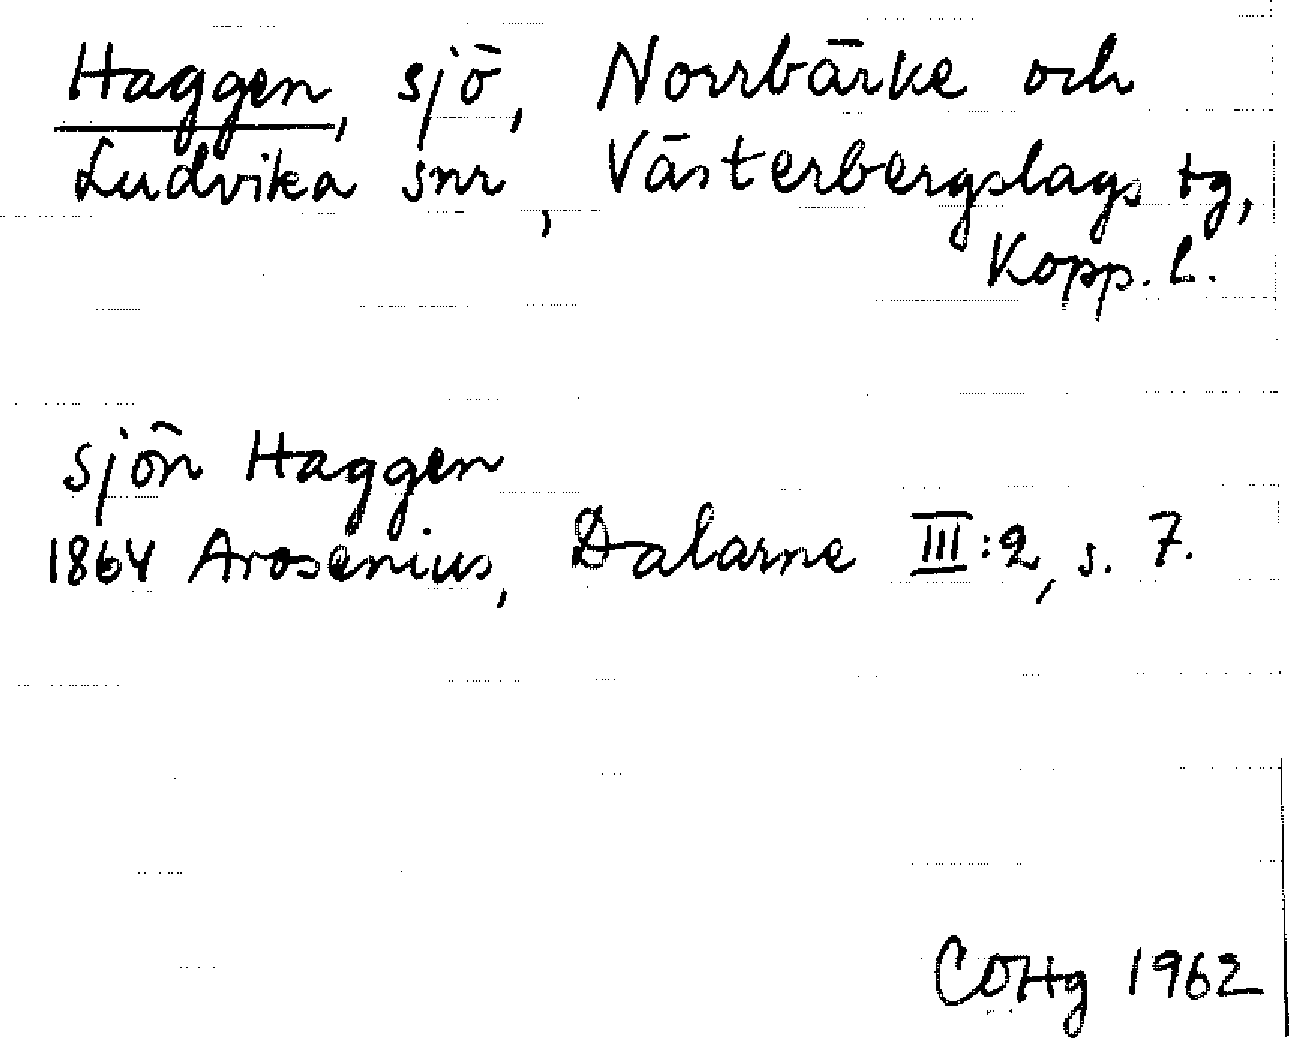 Haggen, sjö, Norrbärke och
Ludvika snr, Västerbergslags tg,
Kopp. l.
sjön Haggen
1864 Arosenius, Dalarne III:2, s. 7.
COHg 1962